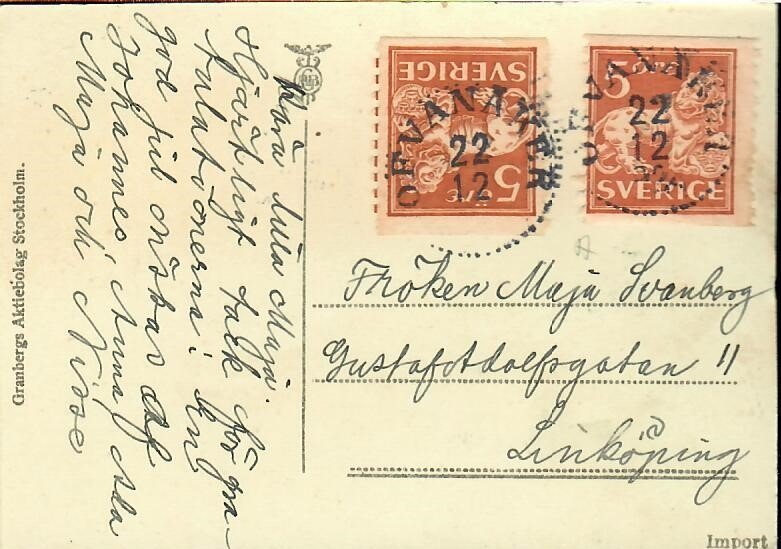 Kära lilla Maja.
Hjärtligt tack för gra-
tulationerna. En
god jul önskas af
Johannes, Anna, Ada
Maja och Nisse
Granbergs Aktiebolag Stockholm.
SVERIGE
5 ÖRE
22
12
5 ÖRE
SVERIGE
22
12
Fröken Maja Svanberg
Gustafadolfsgatan 11
Linköping
Import